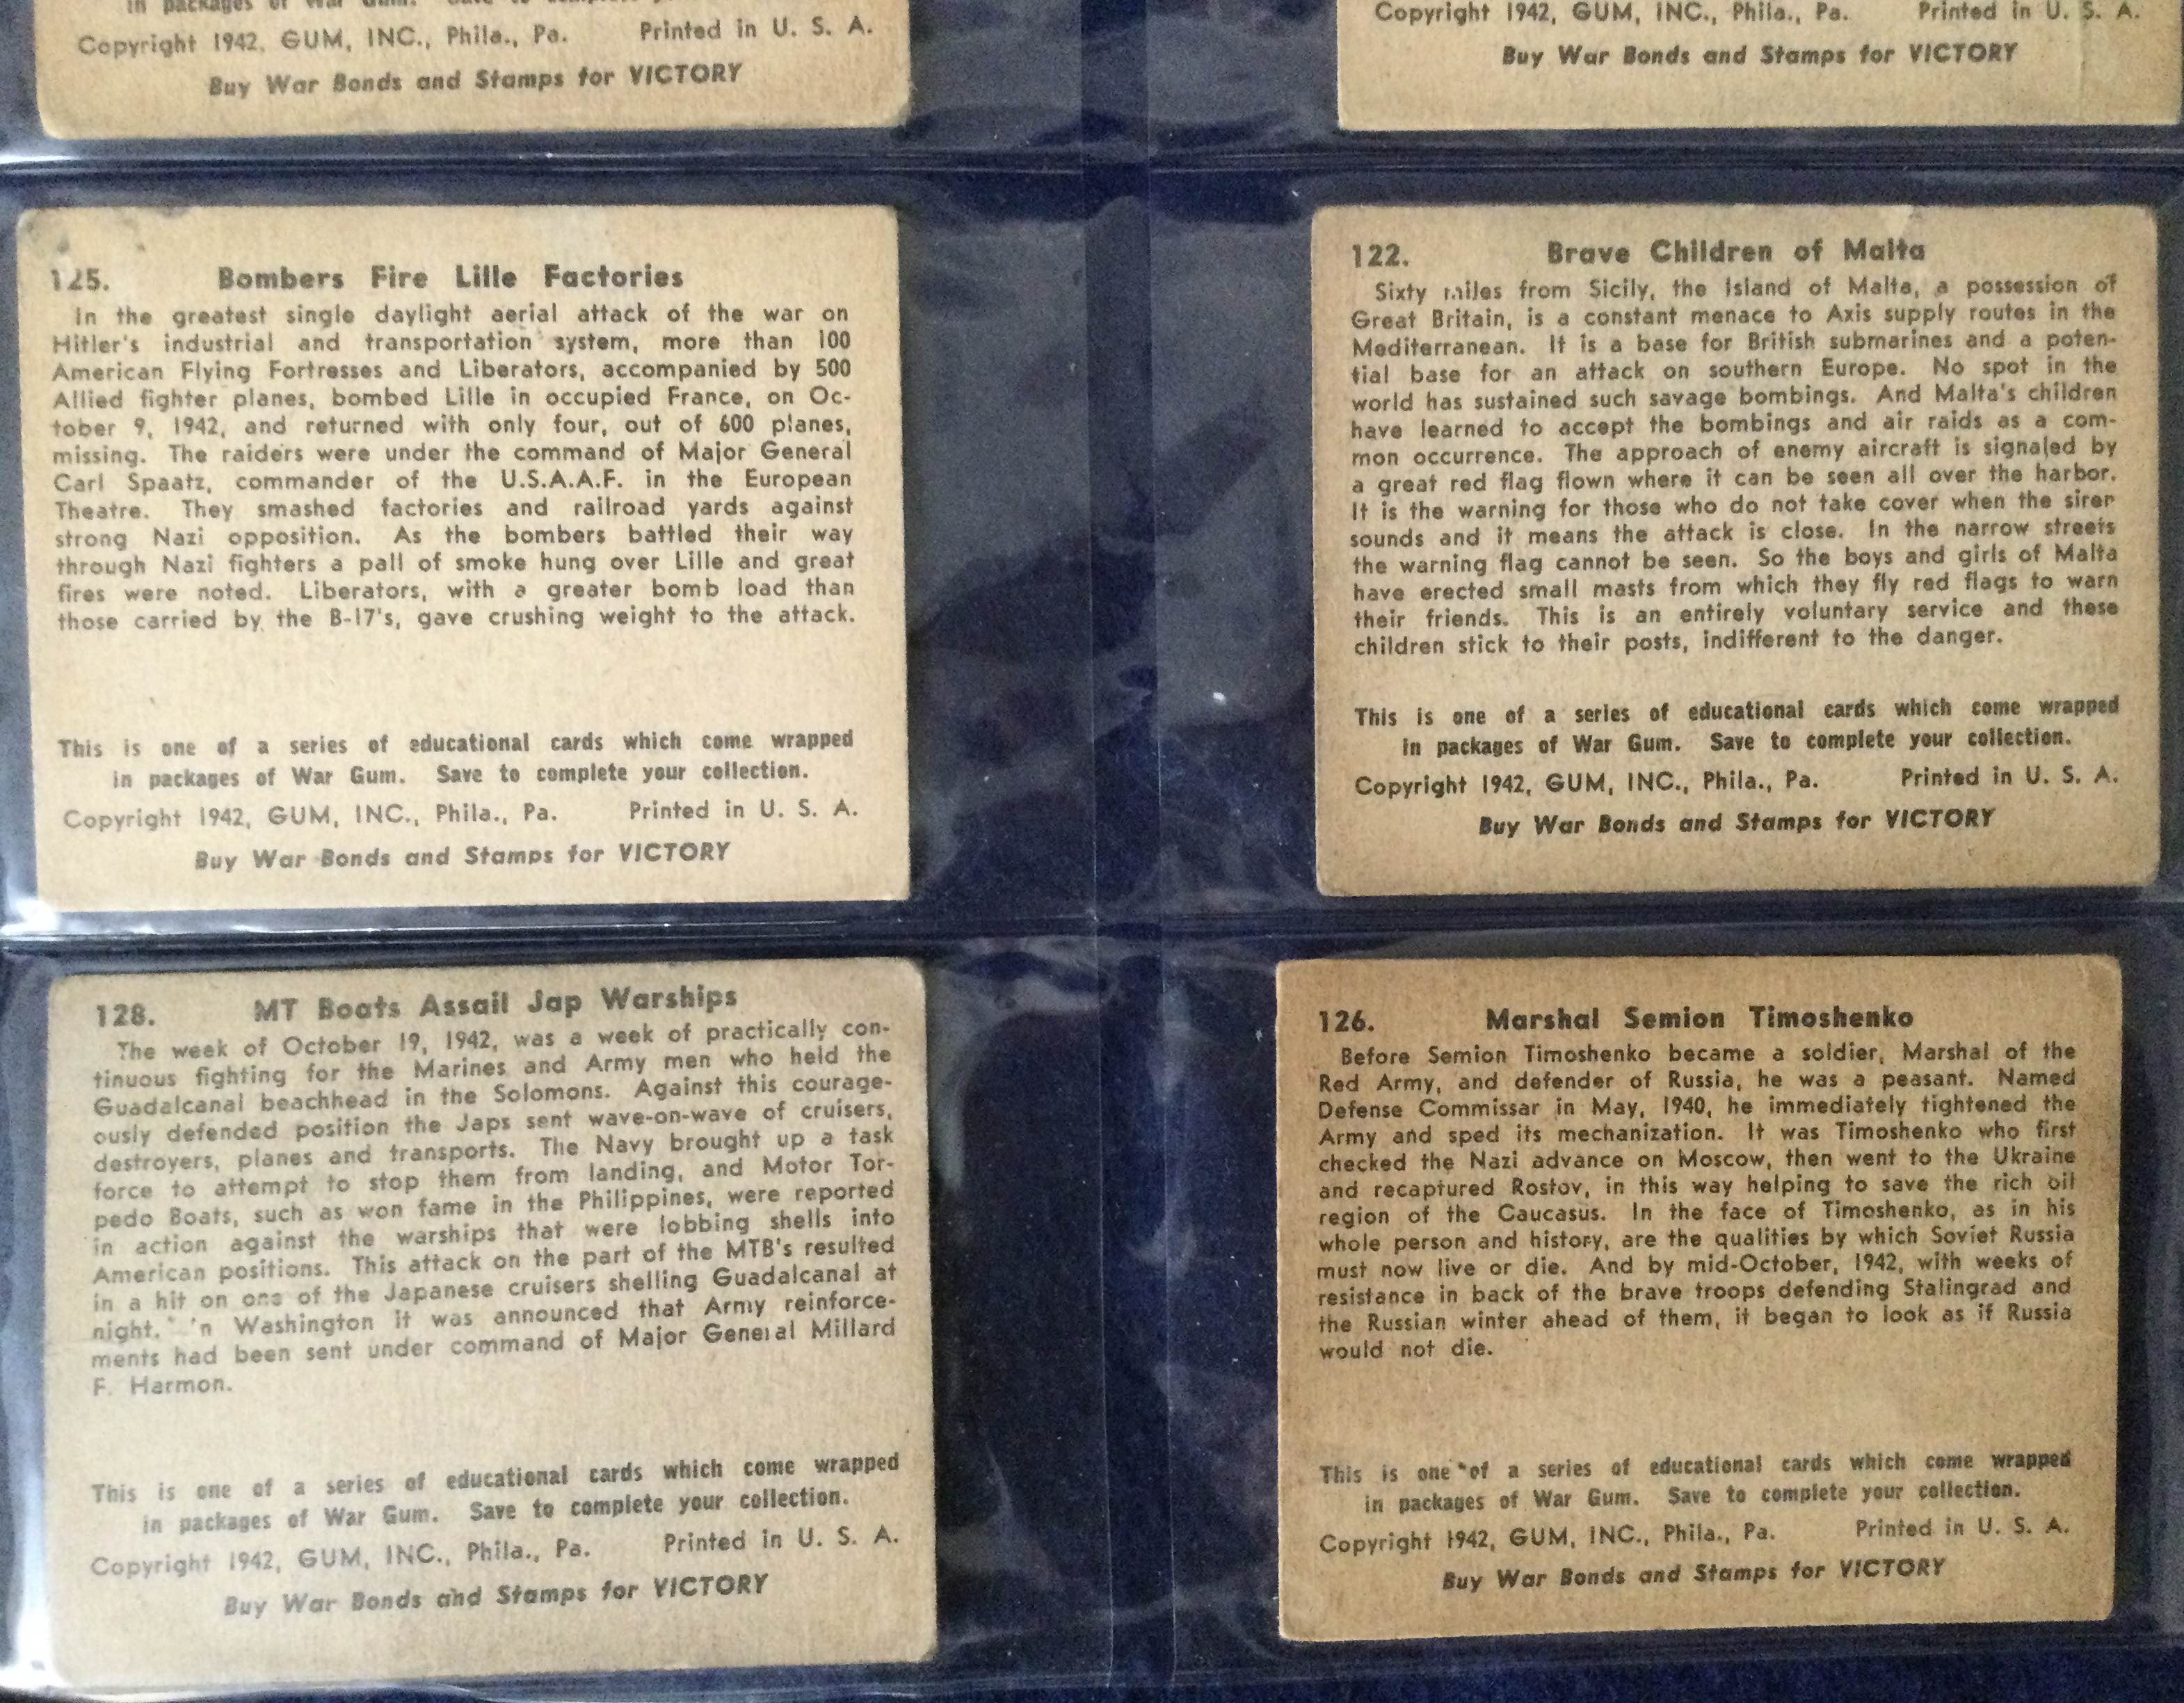 in packages of War Gum. Save to complete
Copyright 1942, GUM, INC., Phila., Pa. Printed in U. S. A.
Buy War Bonds and Stamps for VICTORY
Copyright 1942, GUM, INC., Phila., Pa. Printed in U. S. A.
Buy War Bonds and Stamps for VICTORY
125. Bombers Fire Lille Factories
In the greatest single daylight aerial attack of the war on
Hitler's industrial and transportation system, more than 100
American Flying Fortresses and Liberators, accompanied by 500
Allied fighter planes, bombed Lille in occupied France, on Oc-
tober 9, 1942, and returned with only four, out of 600 planes,
missing. The raiders were under the command of Major General
Carl Spaatz, commander of the U.S.A.A.F. in the European
Theatre. They smashed factories and railroad yards against
strong Nazi opposition. As the bombers battled their way
through Nazi fighters a pall of smoke hung over Lille and great
fires were noted. Liberators, with a greater bomb load than
those carried by the B-17's, gave crushing weight to the attack.
This is one of a series of educational cards which come wrapped
in packages of War Gum. Save to complete your collection.
Copyright 1942, GUM, INC., Phila., Pa. Printed in U. S. A.
Buy War Bonds and Stamps for VICTORY
122. Brave Children of Malta
Sixty miles from Sicily, the Island of Malta, a possession of
Great Britain, is a constant menace to Axis supply routes in the
Mediterranean. It is a base for British submarines and a poten-
tial base for an attack on southern Europe. No spot in the
world has sustained such savage bombings. And Malta's children
have learned to accept the bombings and air raids as a com-
mon occurrence. The approach of enemy aircraft is signaled by
a great red flag flown where it can be seen all over the harbor.
It is the warning for those who do not take cover when the siren
sounds and it means the attack is close. In the narrow streets
the warning flag cannot be seen. So the boys and girls of Malta
have erected small masts from which they fly red flags to warn
their friends. This is an entirely voluntary service and these
children stick to their posts, indifferent to the danger.
This is one of a series of educational cards which come wrapped
in packages of War Gum. Save to complete your collection.
Copyright 1942, GUM, INC., Phila., Pa. Printed in U. S. A.
Buy War Bonds and Stamps for VICTORY
128. MT Boats Assail Jap Warships
The week of October 19, 1942, was a week of practically con-
tinuous fighting for the Marines and Army men who held the
Guadalcanal beachhead in the Solomons. Against this courage-
ously defended position the Japs sent wave-on-wave of cruisers,
destroyers, planes and transports. The Navy brought up a task
force to attempt to stop them from landing, and Motor Tor-
pedo Boats, such as won fame in the Philippines, were reported
in action against the warships that were lobbing shells into
American positions. This attack on the part of the MTB's resulted
in a hit on one of the Japanese cruisers shelling Guadalcanal at
night. In Washington it was announced that Army reinforce-
ments had been sent under command of Major General Millard
F. Harmon.
This is one of a series of educational cards which come wrapped
in packages of War Gum. Save to complete your collection.
Copyright 1942, GUM, INC., Phila., Pa. Printed in U. S. A.
Buy War Bonds and Stamps for VICTORY
126. Marshal Semion Timoshenko
Before Semion Timoshenko became a soldier, Marshal of the
Red Army, and defender of Russia, he was a peasant. Named
Defense Commissar in May, 1940, he immediately tightened the
Army and sped its mechanization. It was Timoshenko who first
checked the Nazi advance on Moscow, then went to the Ukraine
and recaptured Rostov, in this way helping to save the rich oil
region of the Caucasus. In the face of Timoshenko, as in his
whole person and history, are the qualities by which Soviet Russia
must now live or die. And by mid-October, 1942, with weeks of
resistance in back of the brave troops defending Stalingrad and
the Russian winter ahead of them, it began to look as if Russia
would not die.
This is one of a series of educational cards which come wrapped
in packages of War Gum. Save to complete your collection.
Copyright 1942, GUM, INC., Phila., Pa. Printed in U. S. A.
Buy War Bonds and Stamps for VICTORY